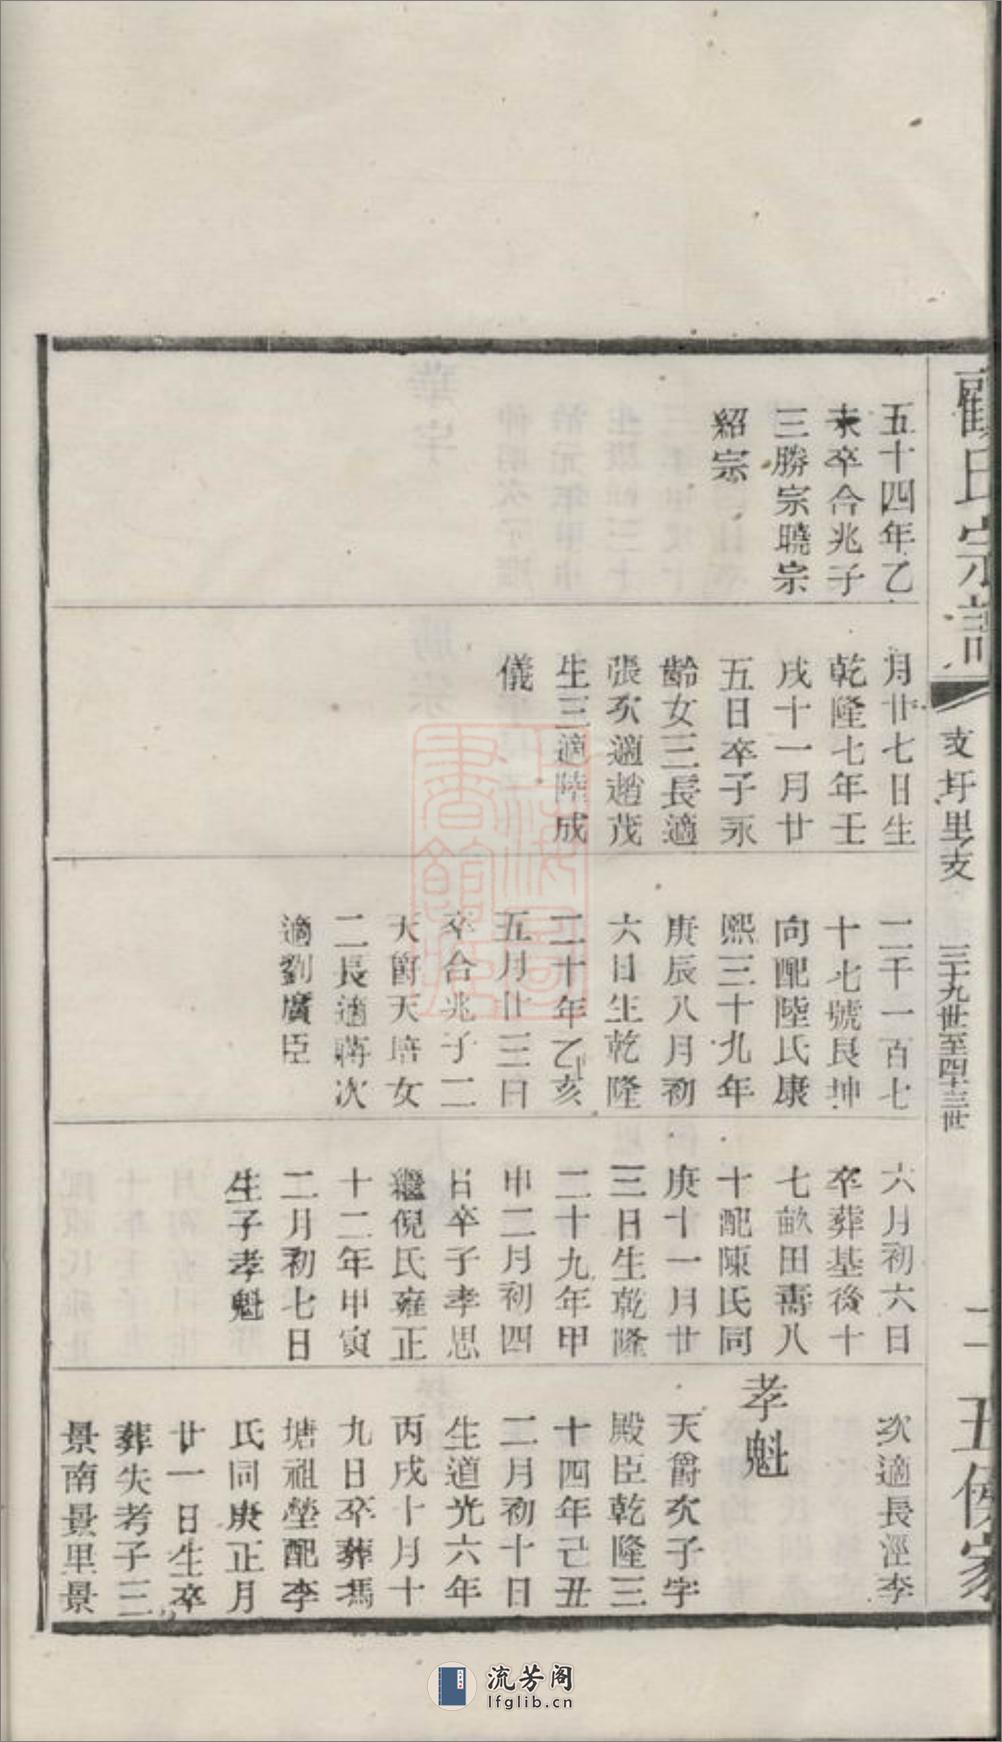 顧氏宗譜
支圩里支
三十九世至四十三世
五十四年乙
未卒合兆子
三勝宗曉宗
紹宗
月廿七日生
乾隆七年壬
戌十一月廿
五日卒子永
齡女三長適
張次適趙茂
生三適陸成
儀
二千一百七
十七號艮坤
向配陸氏康
熙三十九年
庚辰八月初
六日生乾隆
二十年乙亥
五月廿三日
卒合兆子二
天爵天培女
二長適蔣次
適劉廣臣
六月初六日
卒葬基後十
七畝田壽八
十配陳氏同
庚十一月廿
三日生乾隆
二十九年甲
申二月初四
日卒子孝思
繼倪氏雍正
十二年甲寅
二月初七日
生子孝魁
次適長涇李
孝魁
天爵次子字
殿臣乾隆三
十四年己丑
二月初十日
生道光六年
丙戌十月十
九日卒葬馮
塘祖塋配李
氏同庚正月
廿一日生卒
葬失考子三
景南景里景
流芳阁
lfglib.cn